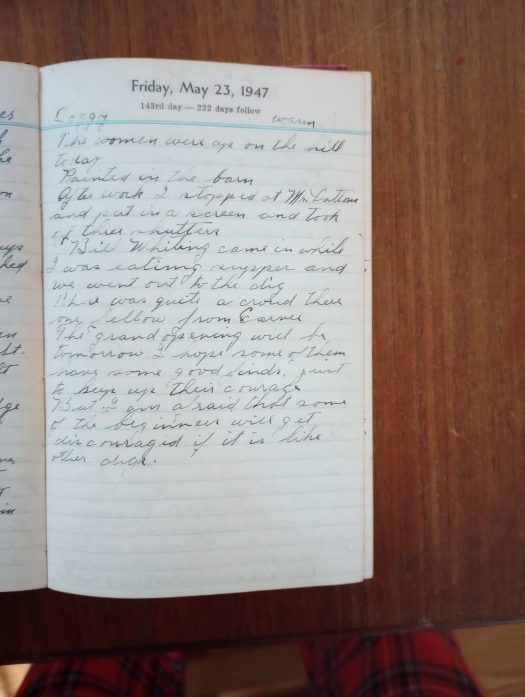 Friday, May 23, 1947
143rd day — 222 days follow
Foggy warm
The women were up on the hill
today
Painted in the barn
After work I stopped at Mr.
and put in a screen and took
off three shutters
Bill Whiting came in while
I was eating supper and
we went out to the dig
There was quite a crowd there
one fellow from Carver
The grand opening will be
tomorrow I hope some of them
have some good finds. just
to keep up their courage
But I am afraid that some
of the beginners will get
discouraged if it is like
other digs.